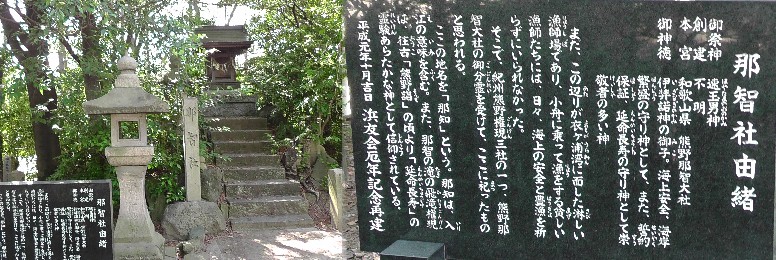 那智社由緒
御祭神 速玉男神
創建 不明
本宮 和歌山県 熊野那智大社
御神徳 伊弉諾神の御子、海上安全、海岸
繁盛の守り神として、また、誓約
保証、延命長寿の守り神として崇
敬者の多い神
また、この辺りが衣ケ浦湾に面した淋しい
漁師場であり、小舟に乗って漁をする貧しい
漁師たちには、日々、海上の安全と豊漁を祈
らずにいられなかった。
そこで、紀州熊野権現三社の一つ、熊野那
智大社の御分霊を受けて、ここに祀ったもの
と思われる。
ここの地名を「那知」という。那知は、入
江の意味を含む。また、那智の滝の飛滝権現
は、往古「熊野詣」の頃より「延命長寿」の
霊験あらたかな神として信仰されている。
平成元年十月吉日 浜友会厄年記念再建
那智社
那智社由緒